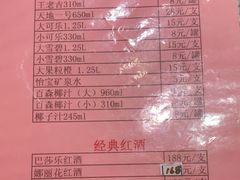 王老吉310ml 8元/罐
天地一号650ml
大可乐1.25L 15元/支
小可乐330ml 8元/罐
大雪碧1.25L 15元/支
小雪碧330ml 8元/罐
大果粒橙 1.25L 15元/支
怡宝矿泉水 元/支
百森椰汁(大)960ml 元/支
百森椰汁(小)310ml 元/罐
椰子汁245ml 元/罐
经典红酒
巴莎乐红酒 188元/支
娜丽花红酒 168 元/支